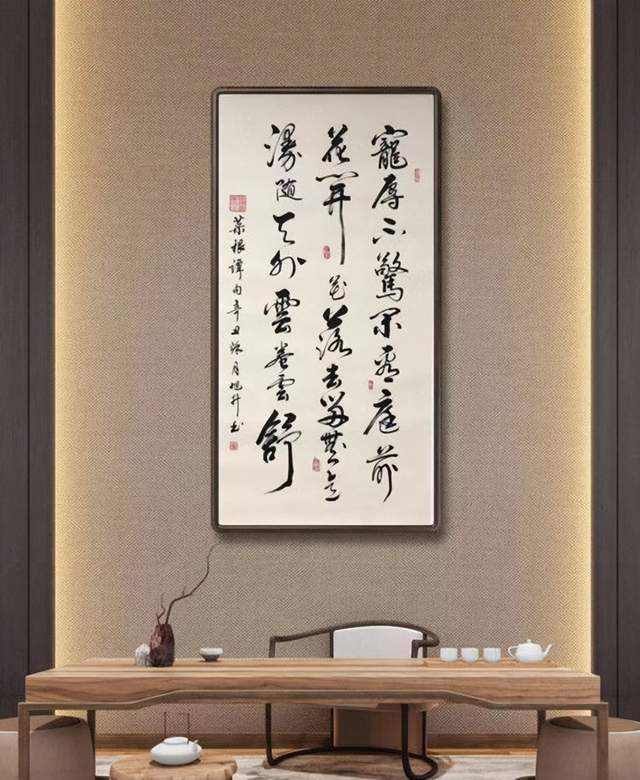 寵辱不驚閑看庭前
花開花落去留無意
漫隨天外雲卷雲舒
菜根譚句辛丑月旭升書